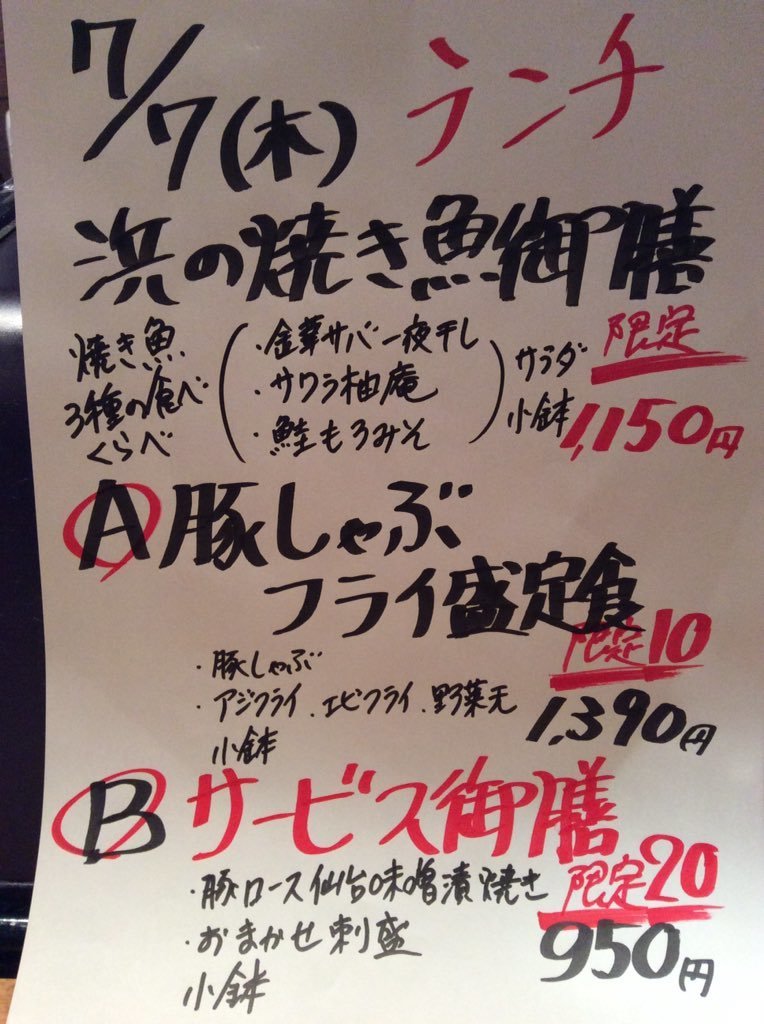 7/7(木) ランチ
浜の焼き魚御膳
焼き魚
3種の食べ
くらべ
・金華サバ一夜干し
・サワラ柚庵
・鮭もろみそ
サラダ
小鉢
限定
1,150円
A 豚しゃぶ
フライ盛定食
限定10
・豚しゃぶ
・アジフライ、エビフライ、野菜天
小鉢
1,390円
B サービス御膳
・豚ロース仙台味噌漬焼き
限定20
・おまかせ刺盛
950円
小鉢